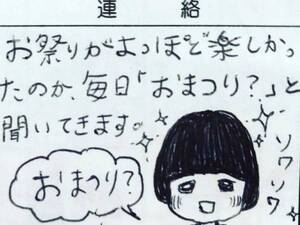 連絡
お祭りがよっぽど楽しかっ
たのか、毎日「おまつり？」と
聞いてきます。
ソワソワ
おまつり？